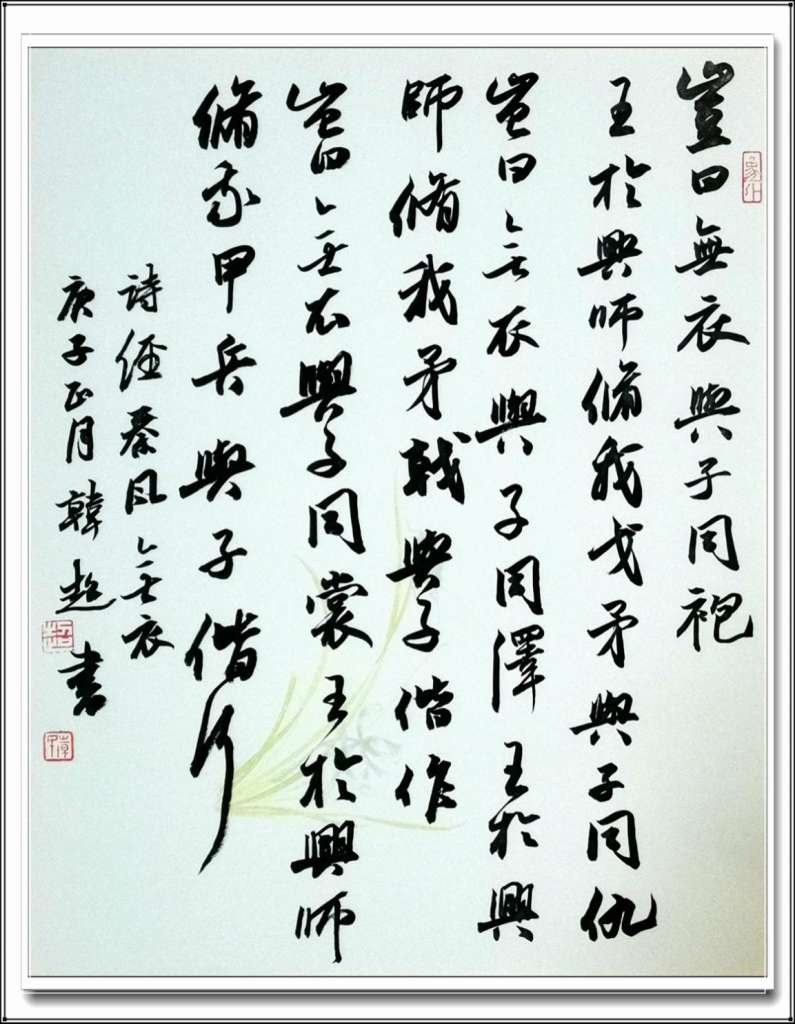 豈曰無衣與子同袍
王於興師脩我戈矛與子同仇
豈曰無衣與子同澤王於興
師脩我矛戟與子偕作
豈曰無衣與子同裳王於興師
脩我甲兵與子偕行
詩經秦風無衣
庚子正月韓超書